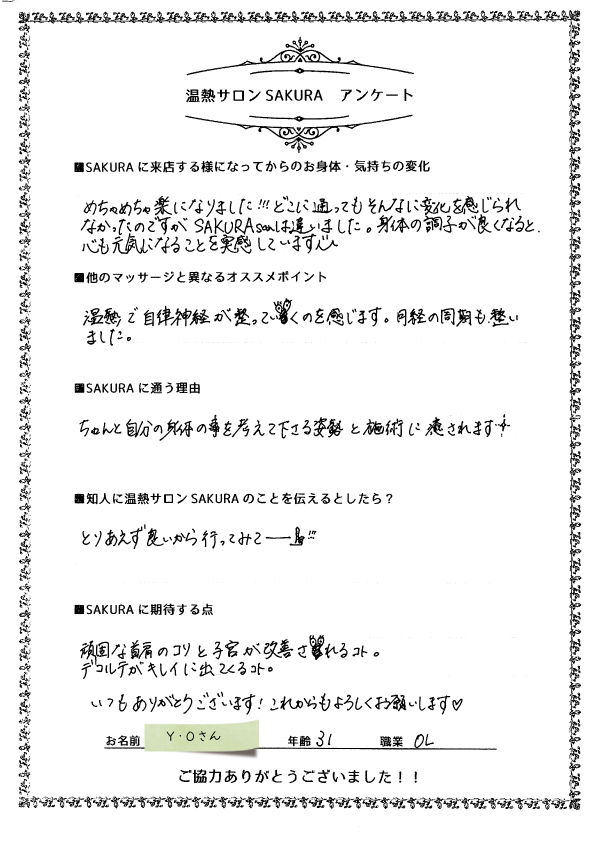 温熱サロン SAKURA　アンケート
■SAKURA に来店する様になってからのお身体・気持ちの変化
めちゃめちゃ楽になりました!!!どこに通ってもそんなに変化を感じられ
なかったのですが SAKURAsanは違いました。身体の調子が良くなると、
心も元気になることを実感しています
■他のマッサージと異なるオススメポイント
温熱で自律神経が整っていくのを感じます。月経の周期も整い
ました。
■SAKURA に通う理由
ちゃんと自分の身体の事を考えて下さる姿勢と施術に癒されます
■知人に温熱サロン SAKURA のことを伝えるとしたら？
とりあえず良いから行ってみてー!!!
■SAKURA に期待する点
頑固な首肩のコリと子宮が改善されるコト。
デコルテがキレイに出てくるコト。
いつもありがとうございます!これからもよろしくお願いします♡
お名前 Y・Oさん 年齢 31 職業 OL
ご協力ありがとうございました！！